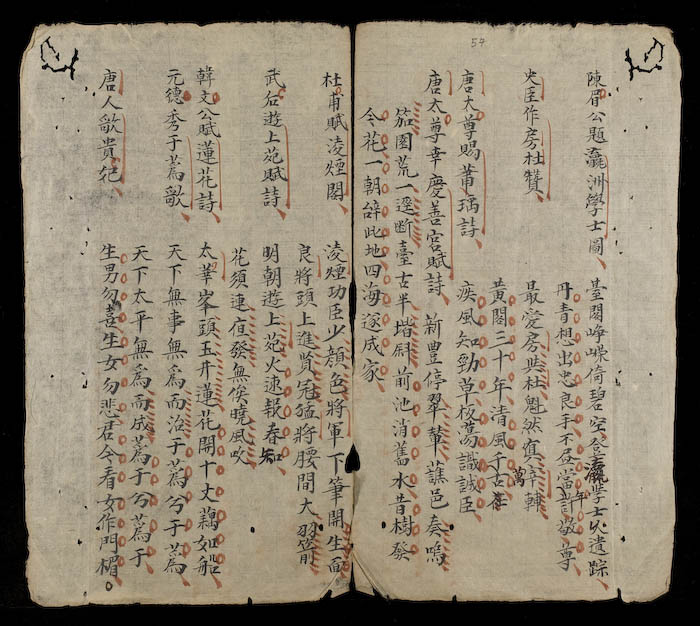 54
陳眉公題瀛洲學士圖 臺閣崢嶸倚碧空登瀛學士久遺踪
丹青想出忠良手不盡當年許敬尊
史臣作房杜贊 最愛房與杜魁然真宰輔
黃閣三十年清風千萬古
唐太尊賜蕭瑀詩 疾風知勁草板蕩識誠臣
唐太尊幸慶善宮賦詩 新豐停翠輦譙邑奏鳴
笳園荒一逕斷臺古半堦斜前池消舊水昔樹發
今花一朝辞此地四海遂成家
杜甫賦淩煙閣 淩煙功臣少顏色將軍下筆開生面
良將頭上進賢冠猛將腰間大羽箭
武后遊上苑賦詩 明朝遊上苑火速報春知
花須連夜發無俟曉風吹
韓文公賦蓮花詩 太華峯頭玉井蓮花開十丈藕如船
元德秀于蔿歌 天下無事無爲而治于蔿兮于蔿
天下太平無爲而成蔿于兮蔿于
唐人歌貴妃 生男勿喜生女勿悲君今看女作門楣